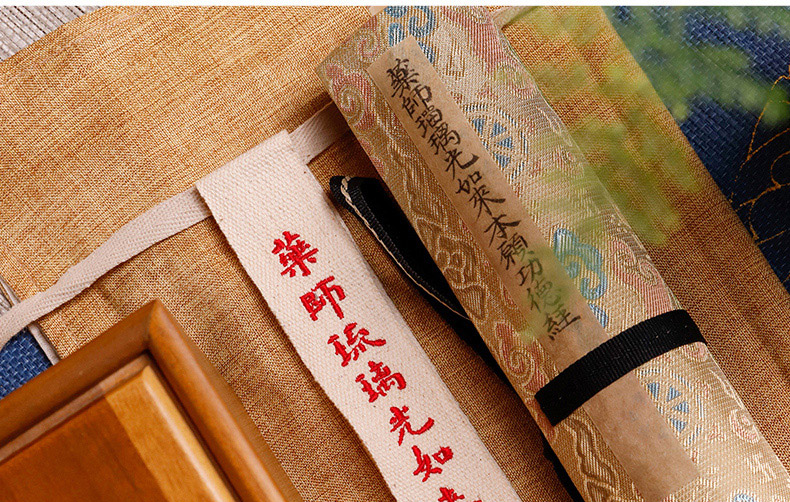 藥師瑠璃光如來本願功德經
藥師琉璃光如